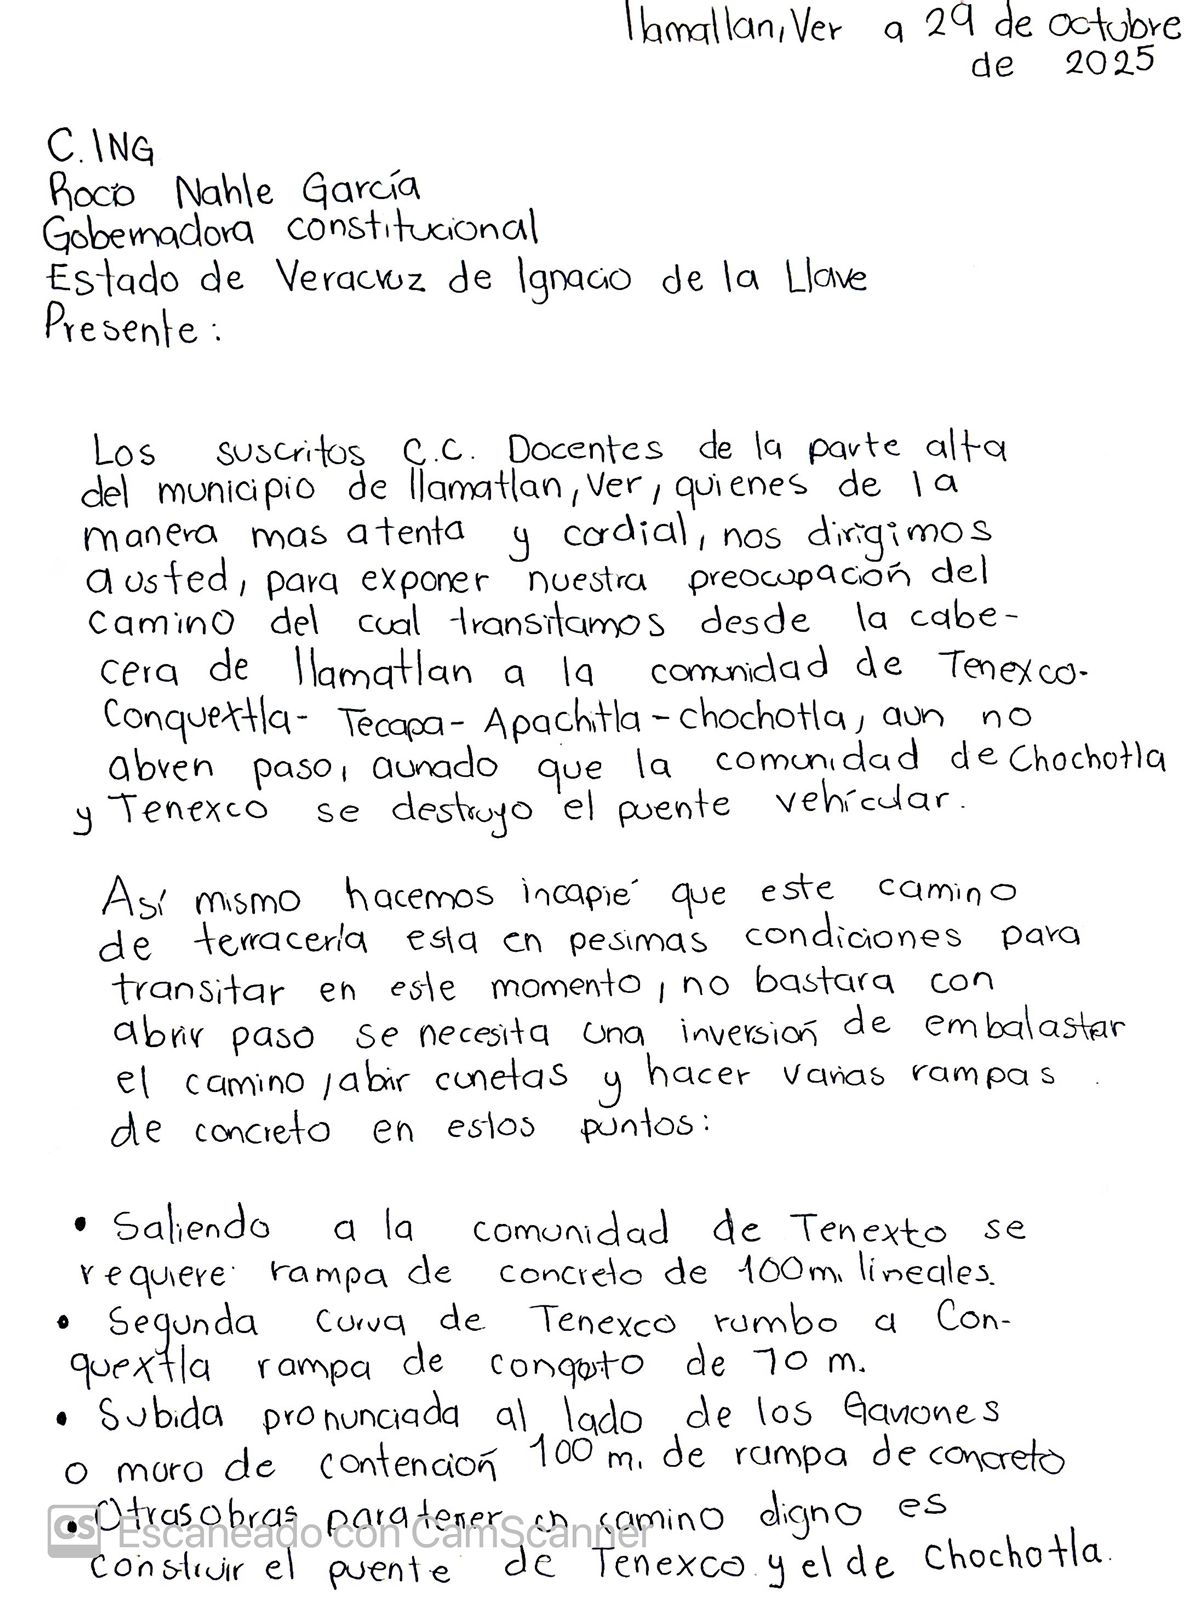 Ilamatlan, Ver a 29 de octubre
de 2025
C. ING
Rocio Nahle García
Gobernadora constitucional
Estado de Veracruz de Ignacio de la Llave
Presente:
Los suscritos C.C. Docentes de la parte alta
del municipio de Ilamatlan, Ver, quienes de la
manera mas atenta y cordial, nos dirigimos
a usted, para exponer nuestra preocupación del
camino del cual transitamos desde la cabe-
cera de Ilamatlan a la comunidad de Tenexco-
Conquextla- Tecapa- Apachitla - chochotla, aun no
abren paso, aunado que la comunidad de Chochotla
y Tenexco se destruyo el puente vehícular.
Así mismo hacemos incapié que este camino
de terracería esta en pesimas condiciones para
transitar en este momento, no bastara con
abrir paso se necesita una inversión de embalastar
el camino, abrir cunetas y hacer varias rampas
de concreto en estos puntos:
• Saliendo a la comunidad de Tenexto se
requiere rampa de concreto de 100m. lineales.
• Segunda curva de Tenexco rumbo a Con-
quextla rampa de de 70 m.
• Subida pronunciada al lado de los Gaviones
o muro de contención 100 m. de rampa de concreto
• Otras obras para tener un camino digno es
construir el puente de Tenexco y el de Chochotla.
CS Escaneado con CamScanner